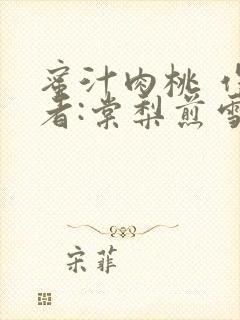 蜜汁肉桃
者:棠梨煎雪
宋菲